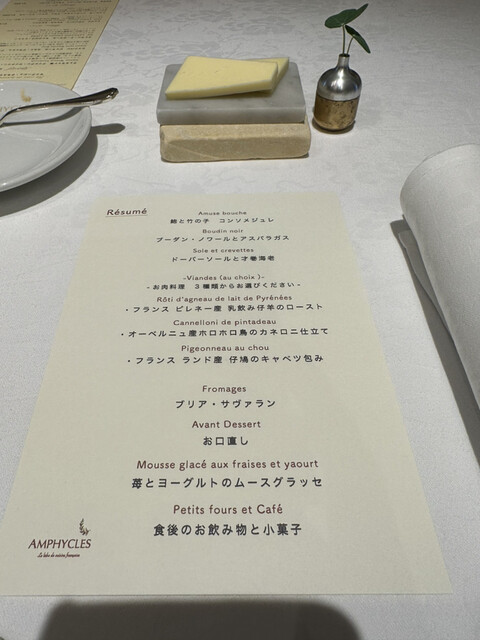 Résumé
Amuse bouche
鮑と竹の子 コンソメジュレ
Boudin noir
ブーダン・ノワールとアスパラガス
Sole et crevettes
ドーバーソールと才巻海老
-Viandes (au choix)-
-お肉料理 3種類からお選びください-
Rôti d'agneau de lait de Pyrénées
・フランス ピレネー産 乳飲み仔羊のロースト
Cannelloni de pintadeau
・オーベルニュ産ホロホロ鳥のカネロニ仕立て
Pigeonneau au chou
・フランス ランド産 仔鳩のキャベツ包み
Fromages
ブリア・サヴァラン
Avant Dessert
お口直し
Mousse glacé aux fraises et yaourt
苺とヨーグルトのムースグラッセ
Petits fours et Café
食後のお飲み物と小菓子
AMPHYCLES